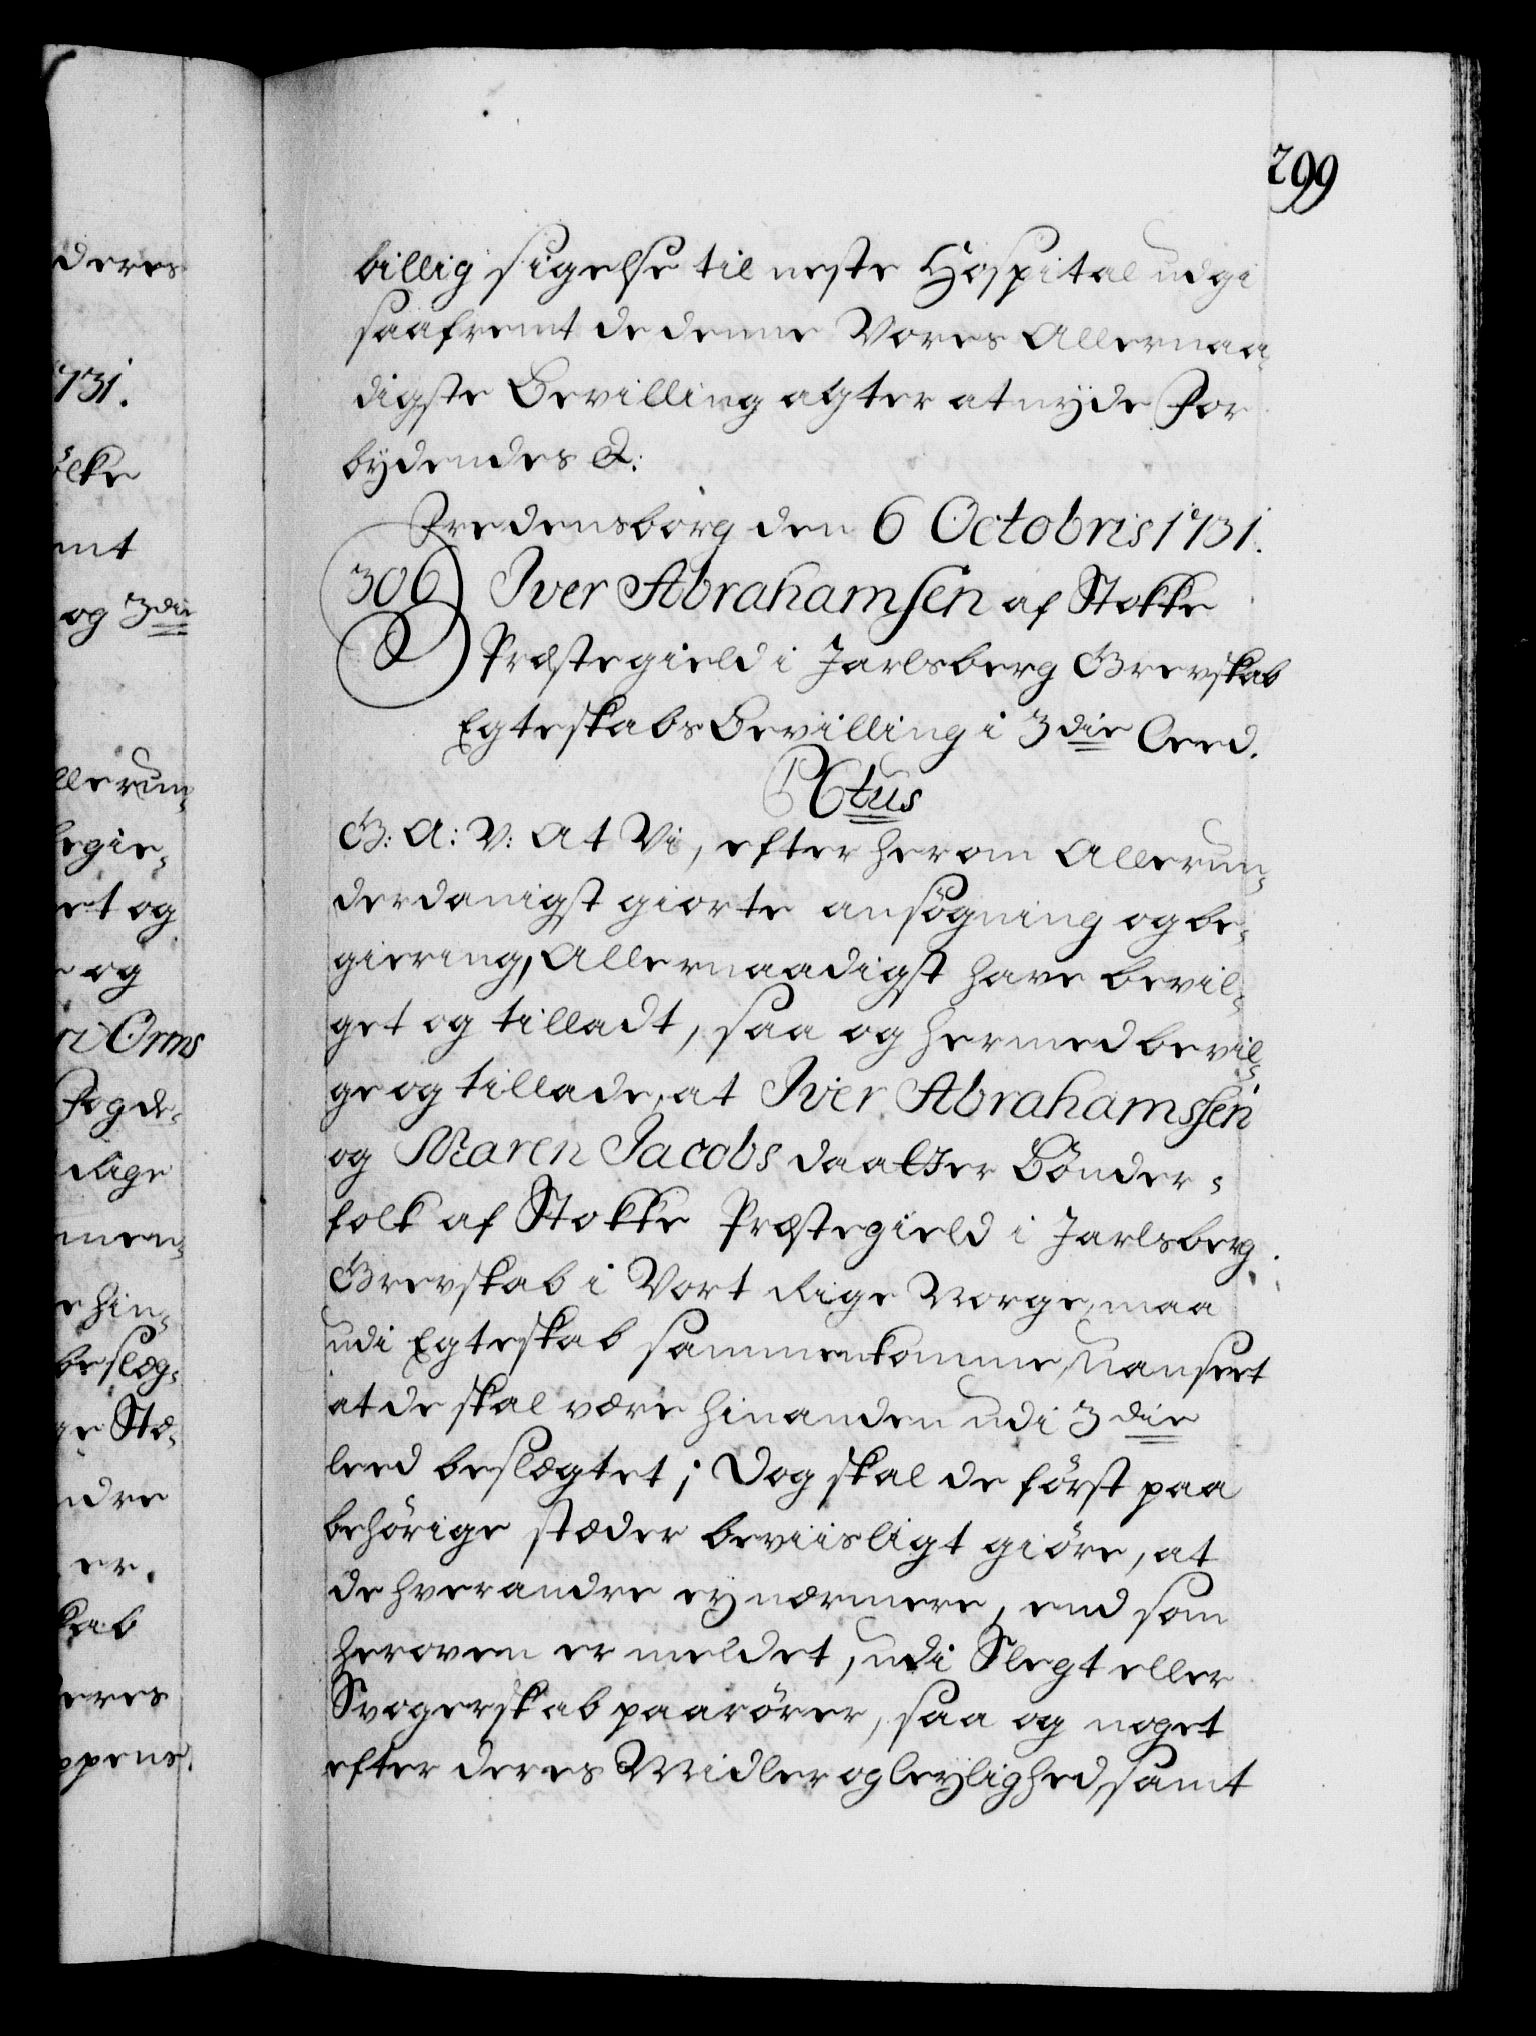 299
billig sigelse til neste Hospital udgi
saafremt de denne Vores Allernaa-
digste Bevilling agter at nyde For
bydendes &:
Fredensborg den 6 Octobris 1731.
306 Iver Abrahamsen af Stokke
Præstegield i Jarlsberg Grevskab
Egteskabs Bevilling i 3die Leed.
G: A: V: At Vi, efter herom Allerun-
derdanigst giorte ansögning og be-
giering, Allernaadigst have bevil-
get og tilladt, saa og hermed bevil-
ge og tillade, at Iver Abrahamssen
og Maren Jacobs daatter Bönder-
folk af Stokke Præstegield i Jarlsberg
Grevskab i Vort Rige Norge, maa
udi Egteskab sammenkomme, Uanseet
at de skal være hinanden udi 3die
leed beslægtet; Dog skal de först paa
behörige stæder beviisligt giöre, at
de hverandre ey nærmere, end som
heroven er meldet, udi Slegt eller
Svogerskab paarörer, saa og noget
efter deres Midler og leylighed, samt
deres
1731.
ölke
mt
og 3die
llerun-
begie-
et og
og
Orms
Fogde-
Rige
men-
e hin-
beslæg-
ge Stæ-
ndre
er.
kab
eres
ppens.